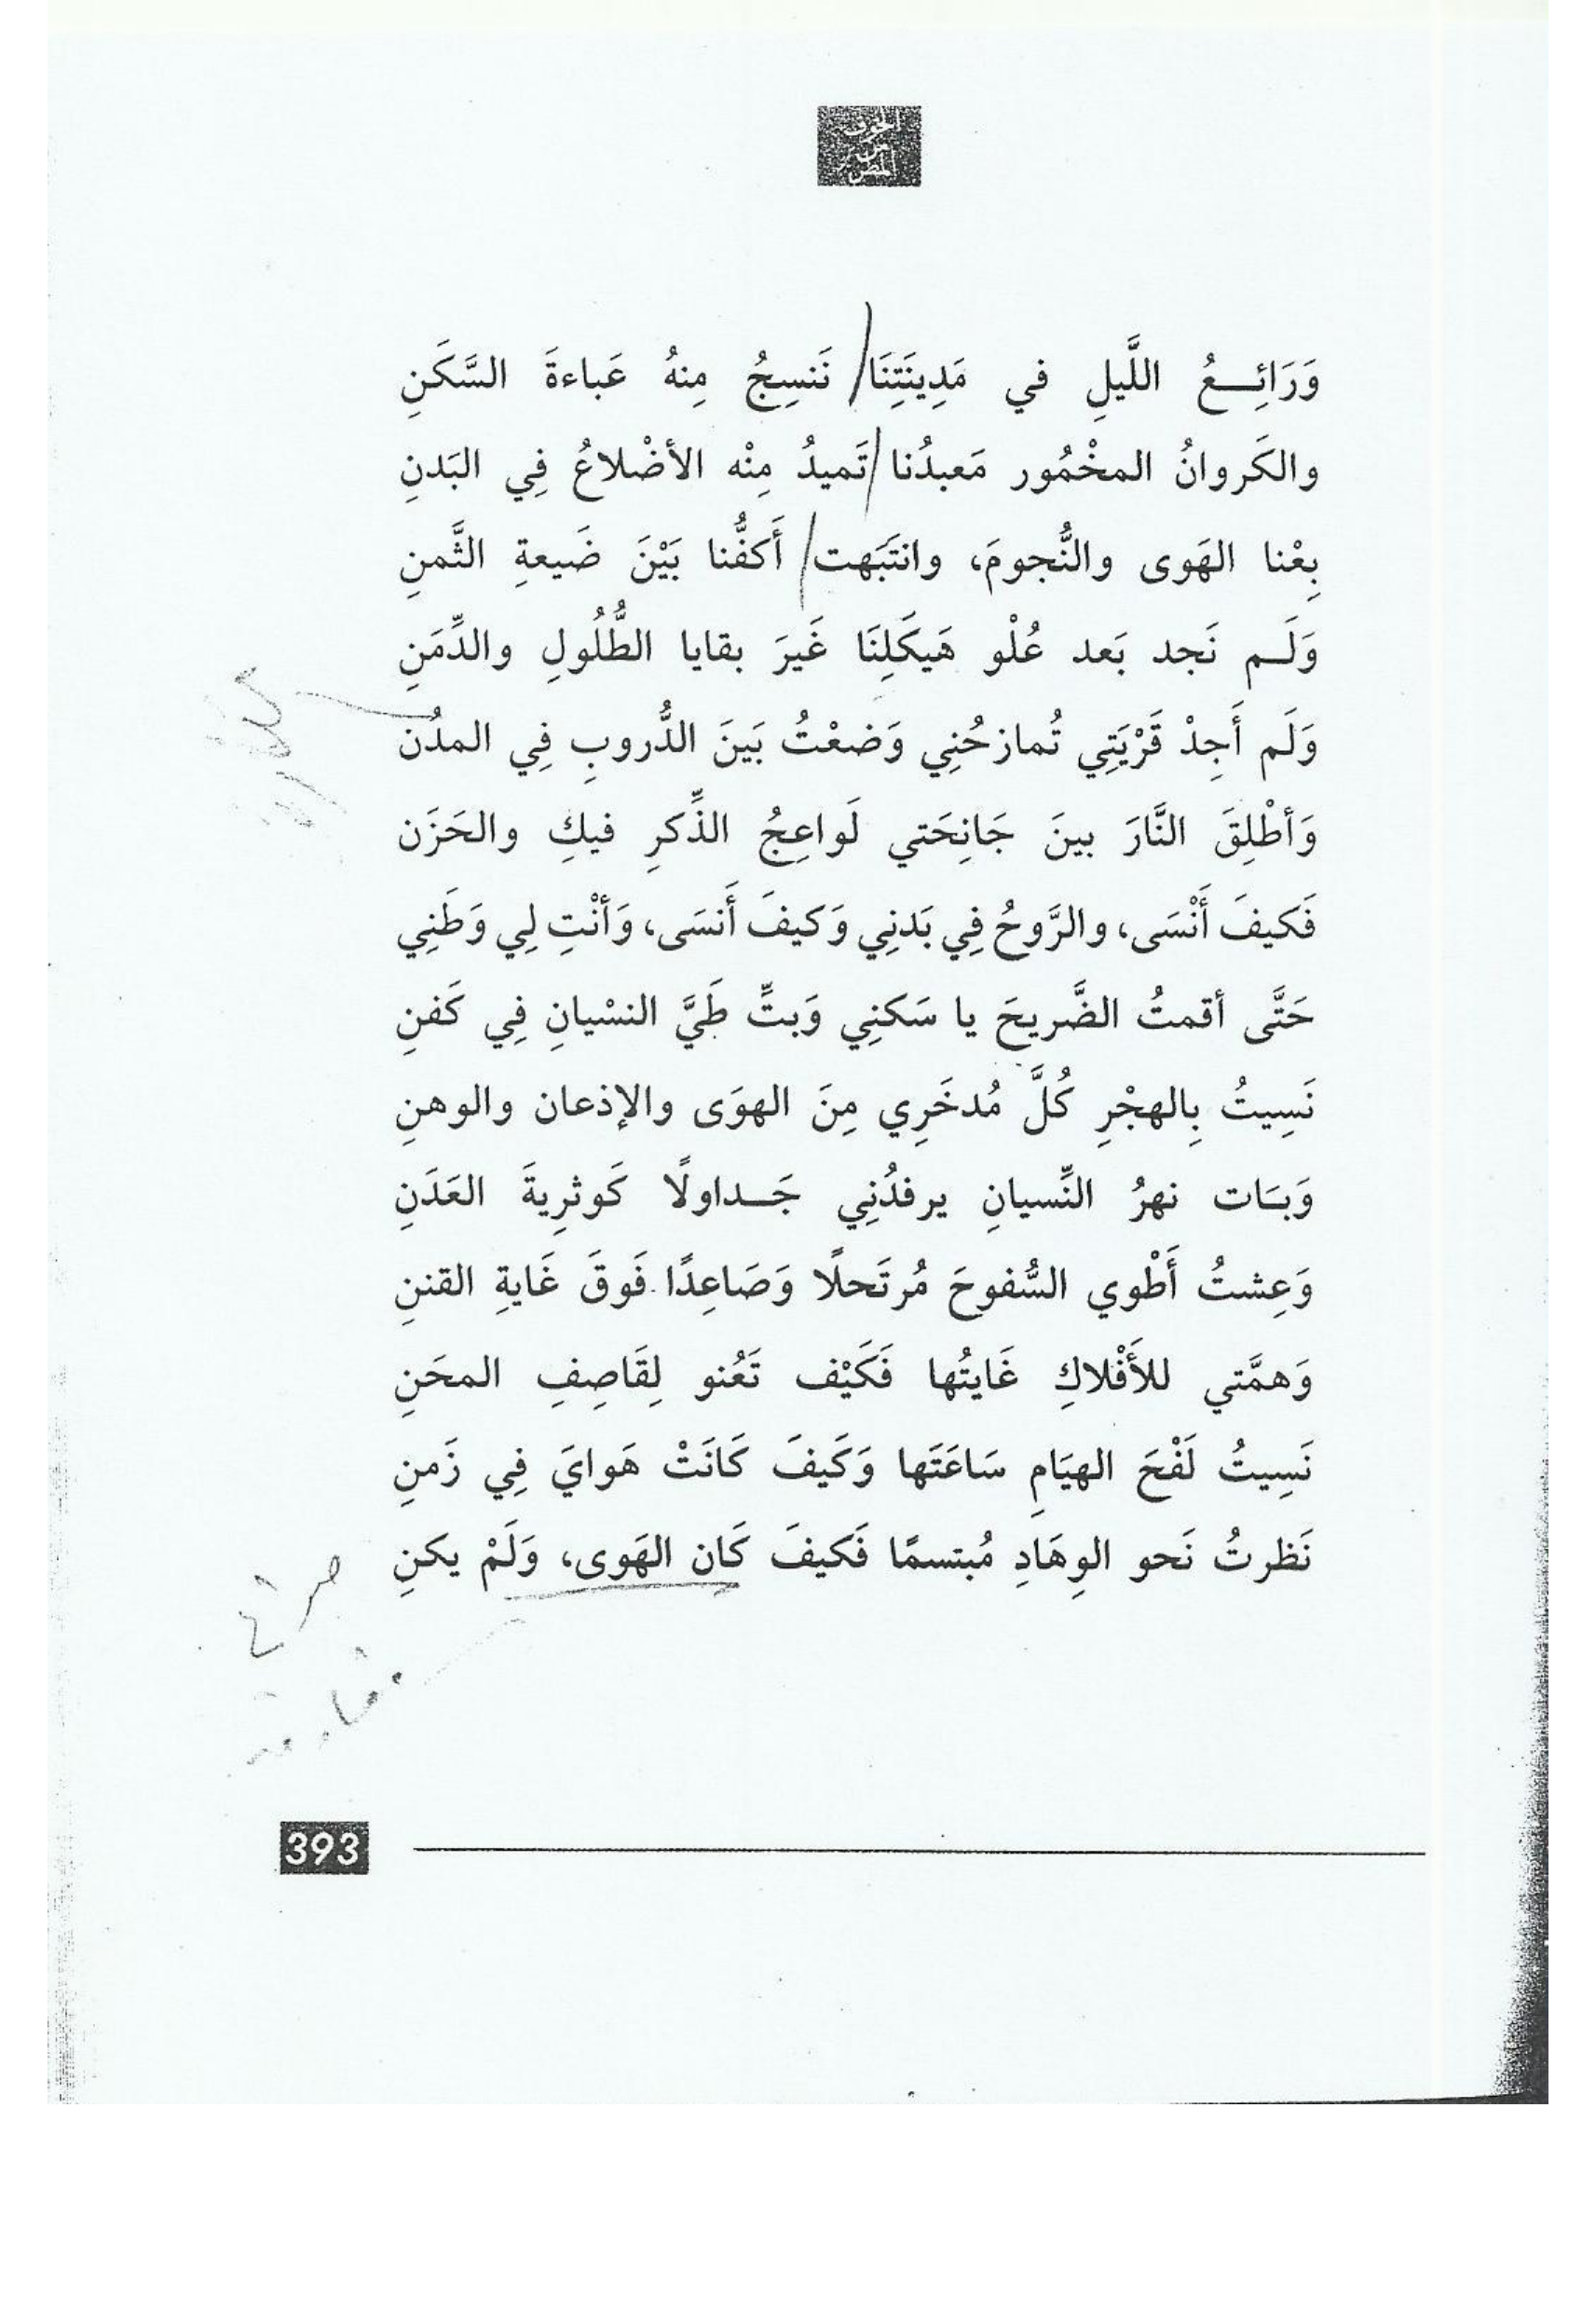 الخوف
من
المطر
وَرَائِـــعُ اللَّيلِ في مَدِينَتِنَا/ نَنسِجُ مِنهُ عَباءةَ السَّكَنِ
والكَروانُ المخْمُور مَعبدُنا/ تَميدُ مِنْه الأضْلاعُ فِي البَدنِ
بِعْنا الهَوى والنُّجومَ، وانتَبَهت/ أَكفُّنا بَيْنَ ضَيعةِ الثَّمنِ
وَلَــم نَجد بَعد عُلْو هَيكَلِنَا غَيرَ بقايا الطُّلُولِ والدِّمَنِ
وَلَم أَجِدْ قَرْيَتِي تُمازحُنِي وَضعْتُ بَينَ الدُّروبِ فِي المدُن
وَأطْلِقَ النَّارَ بينَ جَانِحَتي لَواعِجُ الذِّكرِ فيكِ والحَزَن
فَكيفَ أَنْسَى، والرَّوحُ فِي بَدنِي وَكيفَ أَنسَى، وَأنْتِ لِي وَطَنِي
حَتَّى أقمتُ الضَّريحَ يا سَكنِي وَبتِّ طَيَّ النسْيانِ فِي كَفنِ
نَسِيتُ بِالهجْرِ كُلَّ مُدخَرِي مِنَ الهوَى والإذعان والوهنِ
وَبَـات نهرُ النِّسيانِ يرفدُنِي جَــداولًا كَوثرِيةَ العَدَنِ
وَعِشتُ أَطْوي السُّفوحَ مُرتَحلًا وَصَاعِدًا فَوقَ غَايةِ القننِ
وَهمَّتي للأَفْلاكِ غَايتُها فَكَيْف تَعُنو لِقَاصِفِ المحَنِ
نَسِيتُ لَفْحَ الهيَامِ سَاعَتَها وَكَيفَ كَانَتْ هَوايَ فِي زَمنِ
نَظرتُ نَحو الوِهَادِ مُبتسمًا فَكيفَ كَان الهَوى، وَلَمْ يكنِ
393